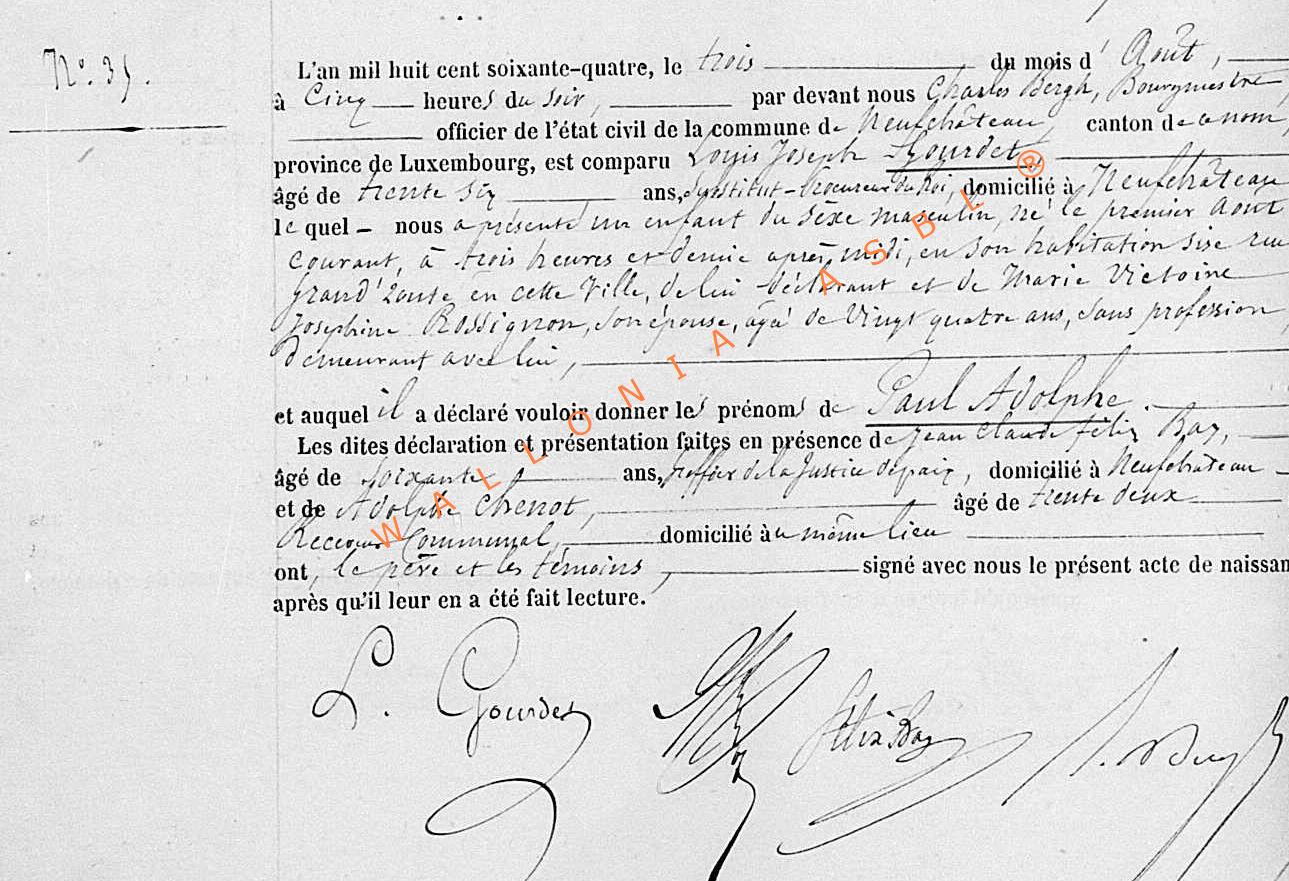 N°. 35.
L'an mil huit cent soixante-quatre, le trois du mois d' Août,
à Cinq heures du soir, par devant nous Charles Bergh, Bourgmestre,
officier de l'état civil de la commune de Neufchâteau, canton de ce nom,
province de Luxembourg, est comparu Louis Joseph Gourdet,
âgé de trente six ans, Substitut-Procureur du Roi, domicilié à Neufchâteau
le quel – nous a présenté un enfant du sèxe masculin, né le premier Août
courant, à trois heures et demie après-midi, en son habitation sise rue
en cette Ville, de lui déclarant et de Marie Victoire
Josephine Rossignon, son épouse, agée de Vingt quatre ans, sans profession,
demeurant avec lui,
et auquel il a déclaré vouloir donner les prénoms de Paul Adolphe.
Les dites déclaration et présentation faites en présence de Jean Claude Félix Bay,
âgé de soixante ans, Greffier de la Justice de paix, domicilié à Neufchâteau
et de Adolphe Chenot, âgé de trente deux
Receveur Communal, domicilié au même lieu
ont, le père et les témoins, signé avec nous le présent acte de naissan
après qu'il leur en a été fait lecture.
L. Gourdet Félix Bay
WALLONIA ASBL ®